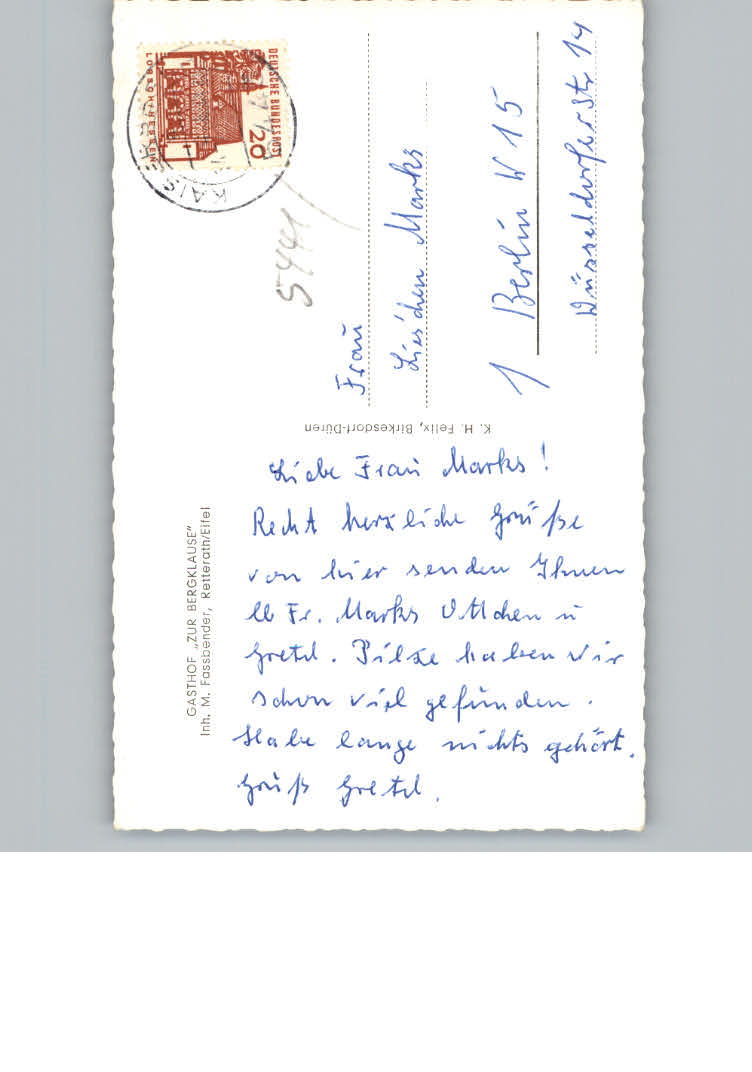 GASTHOF „ZUR BERGKLAUSE"
Inh. M. Fassbender, Retterath/Eifel
Liebe Frau Marks!
Recht herzliche Grüße
von hier senden Ihnen
lb Fr. Marks Ottchen u
Gretel. Pilze haben wir
schon viel gefunden.
Habe lange nichts gehört.
Gruß Gretel.
K. H. Felix, Birkesdorf-Düren
DEUTSCHE BUNDESPOST
20
LORSCH/HESSEN
KAISER
5441
Frau
Lieschen Marks
1 Berlin W 15
Düsseldorferstr 14